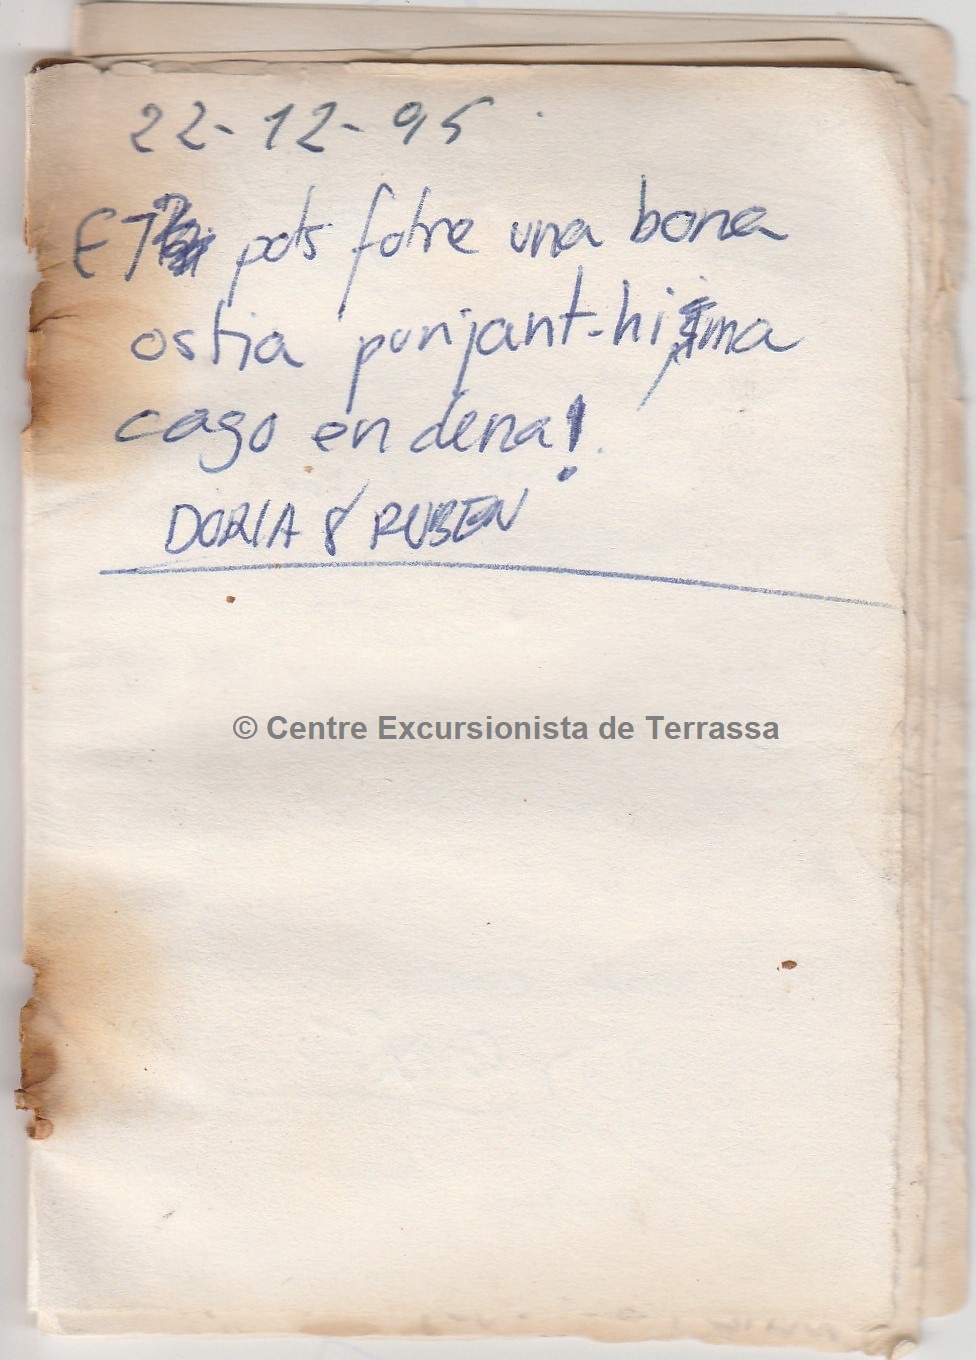 22-12-95
ET pots fotre una bona
ostia punjant-hi, ma
cago en dena!
DORIA & RUBEN
© Centre Excursionista de Terrassa